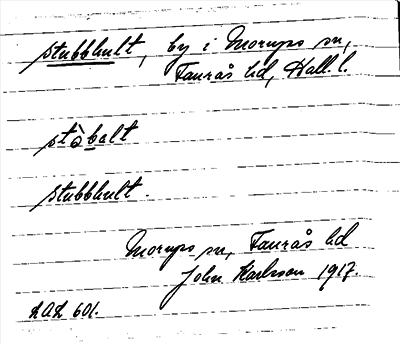 Stubbhult, by i Morups sn,
Faurås hd, Hall. l.
stòbalt
Stubbhult.
Morups sn, Faurås hd
John Karlsson 1917.
LAL 601.